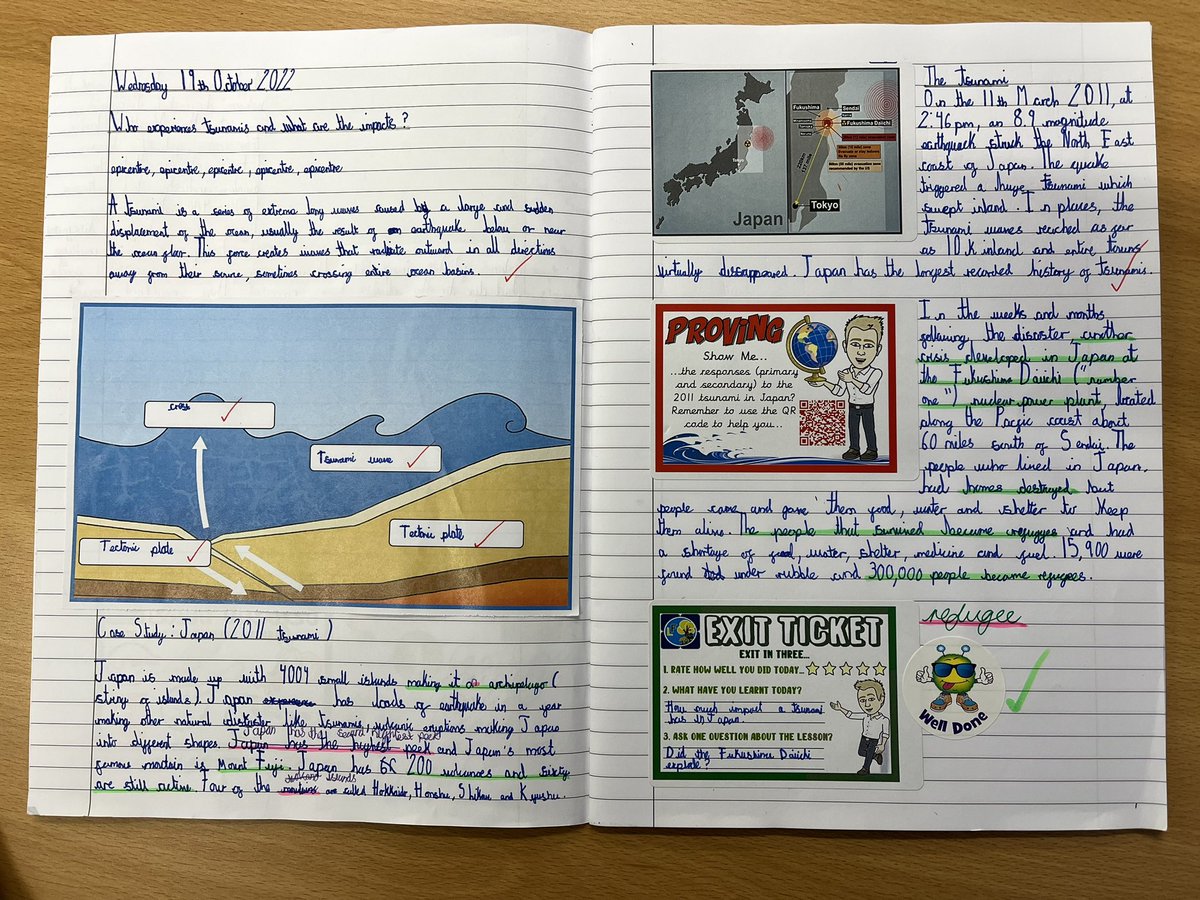 Wednesday 19th October 2022
Who experiences tsunamis and what are the impacts?
epicentre, epicentre, epicentre, epicentre, epicentre
A tsunami is a series of extreme long waves caused by a large and sudden
displacement of the ocean, usually the result of an earthquake below or near
the ocean floor. This force creates waves that radiate outward in all directions
away from their source, sometimes crossing entire ocean basins.
crest
Tsunami wave
Tectonic plate
Tectonic plate
Case Study: Japan (2011 tsunami)
Japan is made up with 4004 small islands making it a archipelago (
string of islands). Japan has loads of earthquake in a year
making other natural like tsunamis, volcanic eruptions making Japan
Japan has the second heightest peek
into different shapes. Japan has the highest peek and Japan's most
famous is Mount Fuji. Japan has 200 volcanoes and sixty
islands
are still active. Four of the are called Hokkaido, Honshu, Shikou and Kyushu.
Fukushima
Sendai
Fukushima Daiichi
Tokyo
Japan
Tokyo
The tsunami
On the 11th March 2011, at
2:46pm, an 8.9 magnitude
earthquack struck the North East
coast of Japan. The quake
triggered a huge tsunami which
swept inland. In places, the
tsunami waves reached as far
as 10.K inland and entire towns
virtually disappeared. Japan has the longest recorded history of tsunamis.
PROVING
Show Me...
...the responses (primary
and secondary) to the
2011 tsunami in Japan?
Remember to use the QR
code to help you...
In the weeks and months
following the disaster another
crisis developed in Japan at
the Fukushima Daiichi ("number
one") nuclear power plant, located
along the Pacific coast about
60 miles south of Sendai. The
people who lived in Japan,
had homes destroyed but
people came and gave them food, water and shelter to keep
them alive. The people that survived became refugges and had
a shortage of food, water, shelter, medicine and fuel. 15,900 were
found under rubble and 300,000 people became refugees.
EXIT TICKET
EXIT IN THREE...
1. RATE HOW WELL YOU DID TODAY...
2. WHAT HAVE YOU LEARNT TODAY?
How much impact a tsunami
has in Japan.
3. ASK ONE QUESTION ABOUT THE LESSON?
Did the Fukushima Daiichi
explode?
refugee
Well Done